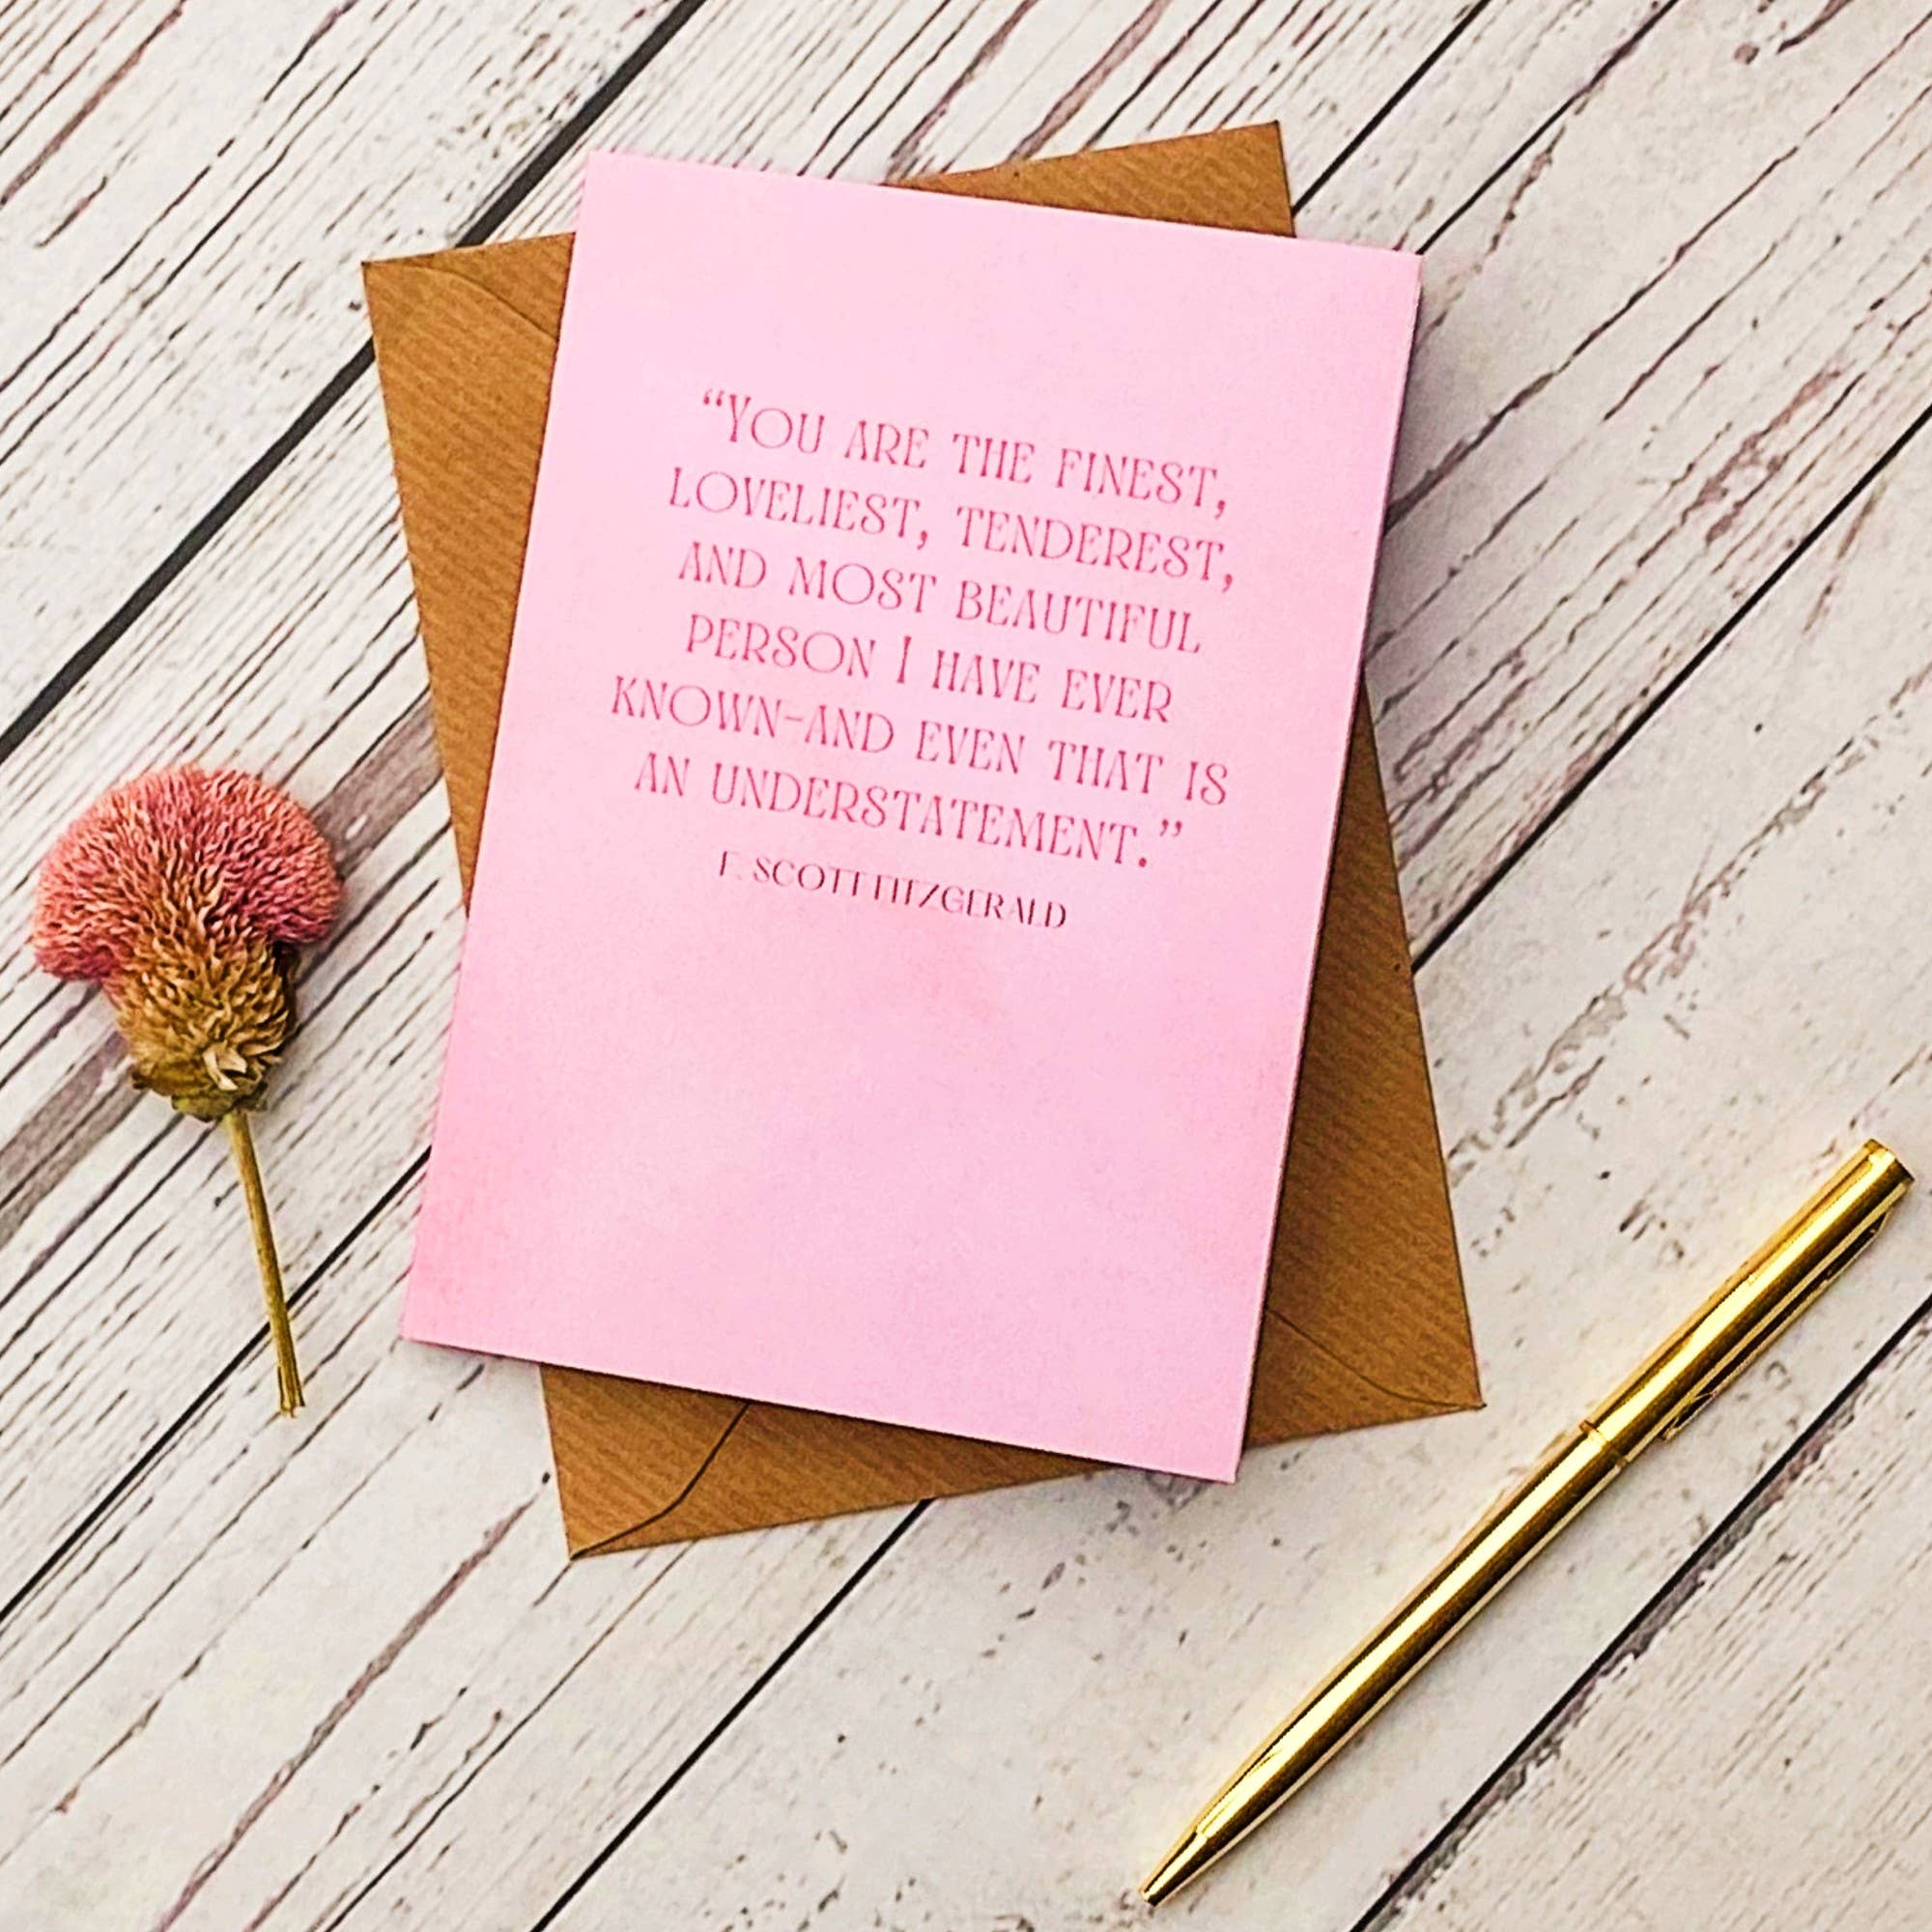 “You are the finest,
loveliest, tenderest,
and most beautiful
person I have ever
known-and even that is
an understatement.”
F. SCOTT FITZGERALD